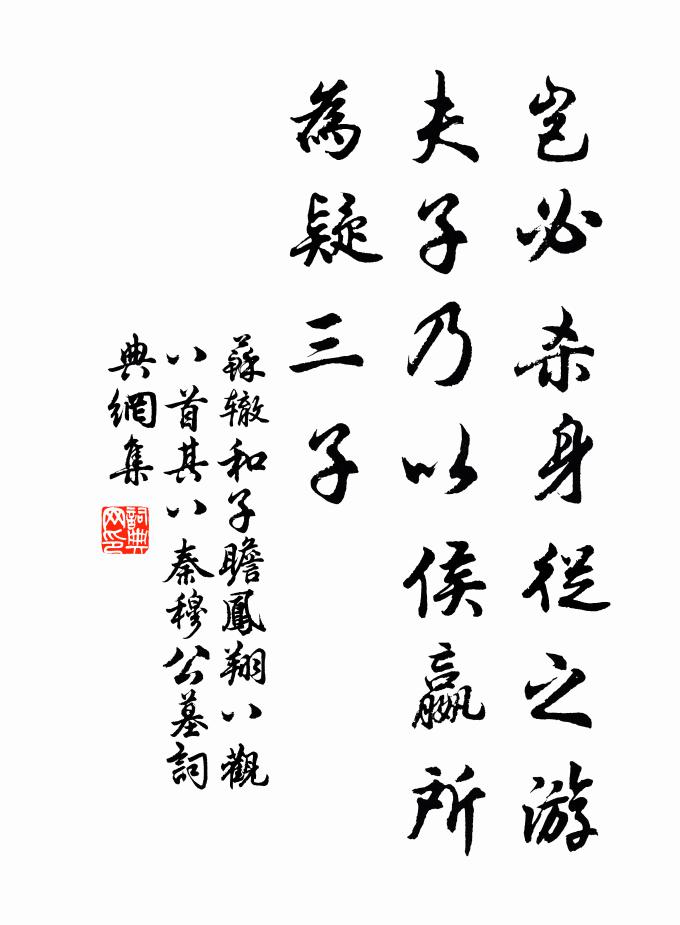 岂必杀身從之游
夫子乃以侯嬴所
為疑三子
蘇辙和子瞻鳳翔八觀
八首其八秦穆公墓詞
典網集
詞典
网印